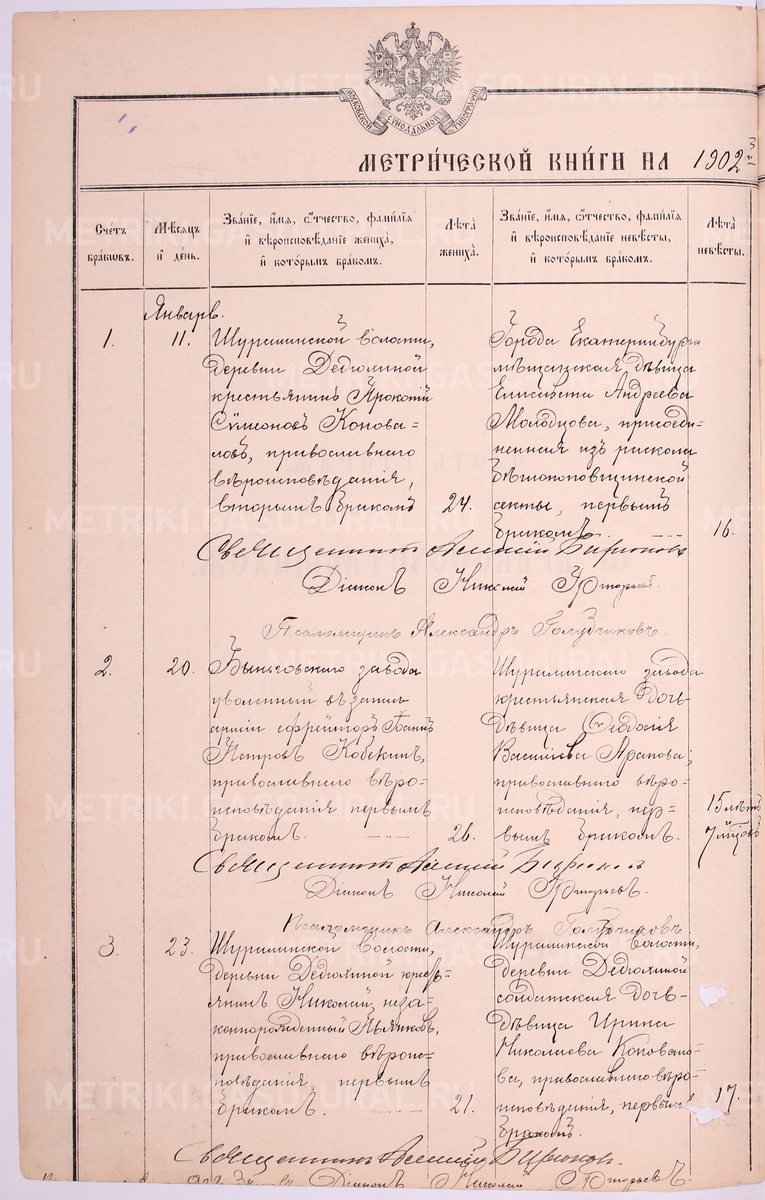 МОСКОВСКОЙ СѴНОДАЛЬНОЙ ТИПОГРАФІИ
МЕТРИ́ЧЕСКОЙ КНИ́ГИ НА 1902
Счетъ браковъ.
Мѣсяцъ и день.
Званіе, имя, отчество, фамилія и вѣроисповѣданіе жениха, и которымъ бракомъ.
Лѣта жениха.
Званіе, имя, отчество, фамилія и вѣроисповѣданіе невѣсты, и которымъ бракомъ.
Лѣта невѣсты.
Январь.
1.
11.
Шуралинской волости,
деревни Дедюлиной
крестьянинъ Прокопій
Сѵмеоновъ Конова=
ловъ, православнаго
вѣроисповѣданія,
вторымъ бракомъ
24.
Города Екатеринбурга
мѣщанская дѣвица
Елисавета Андреева
Молодцова, присоеди-
ненная из раскола
бѣглопоповщинской
секты, первымъ
бракомъ.
16.
Священникъ Алексій Бирюковъ
Діаконъ Николай
Псаломщикъ Александръ Голубчиковъ.
2.
20.
Быньговскаго завода
уволенный въ запасъ
арміи ефрейторъ Іоаннъ
Петровъ Кобекинъ,
православнаго вѣро=
исповѣданія первымъ
бракомъ.
26.
Шуралинскаго завода
крестьянская дочь
дѣвица Ѳеодосія
Василіева Арапова,
православнаго вѣро-
исповѣданія, пер=
вымъ бракомъ.
15 лѣтъ
7 мѣсѣцъ
Священникъ Алексій Бирюковъ
Діаконъ Николай
Псаломщикъ Александръ Голубчиковъ
3.
23.
Шуралинской волости,
деревни Дедюлиной кресть-
янинъ Николай, неза-
коннорожденный Пьянковъ,
православнаго вѣроис=
повѣданія, первымъ
бракомъ.
21.
Шуралинской волости,
деревни Дедюлиной
солдатская дочь
дѣвица Ирина
Николаева Коновало-
ва, православнаго вѣро-
исповѣданія, первымъ
бракомъ.
17.
Священникъ Алексій Бирюков.
Діаконъ Николай
METRIKI.GASO-URAL.RU